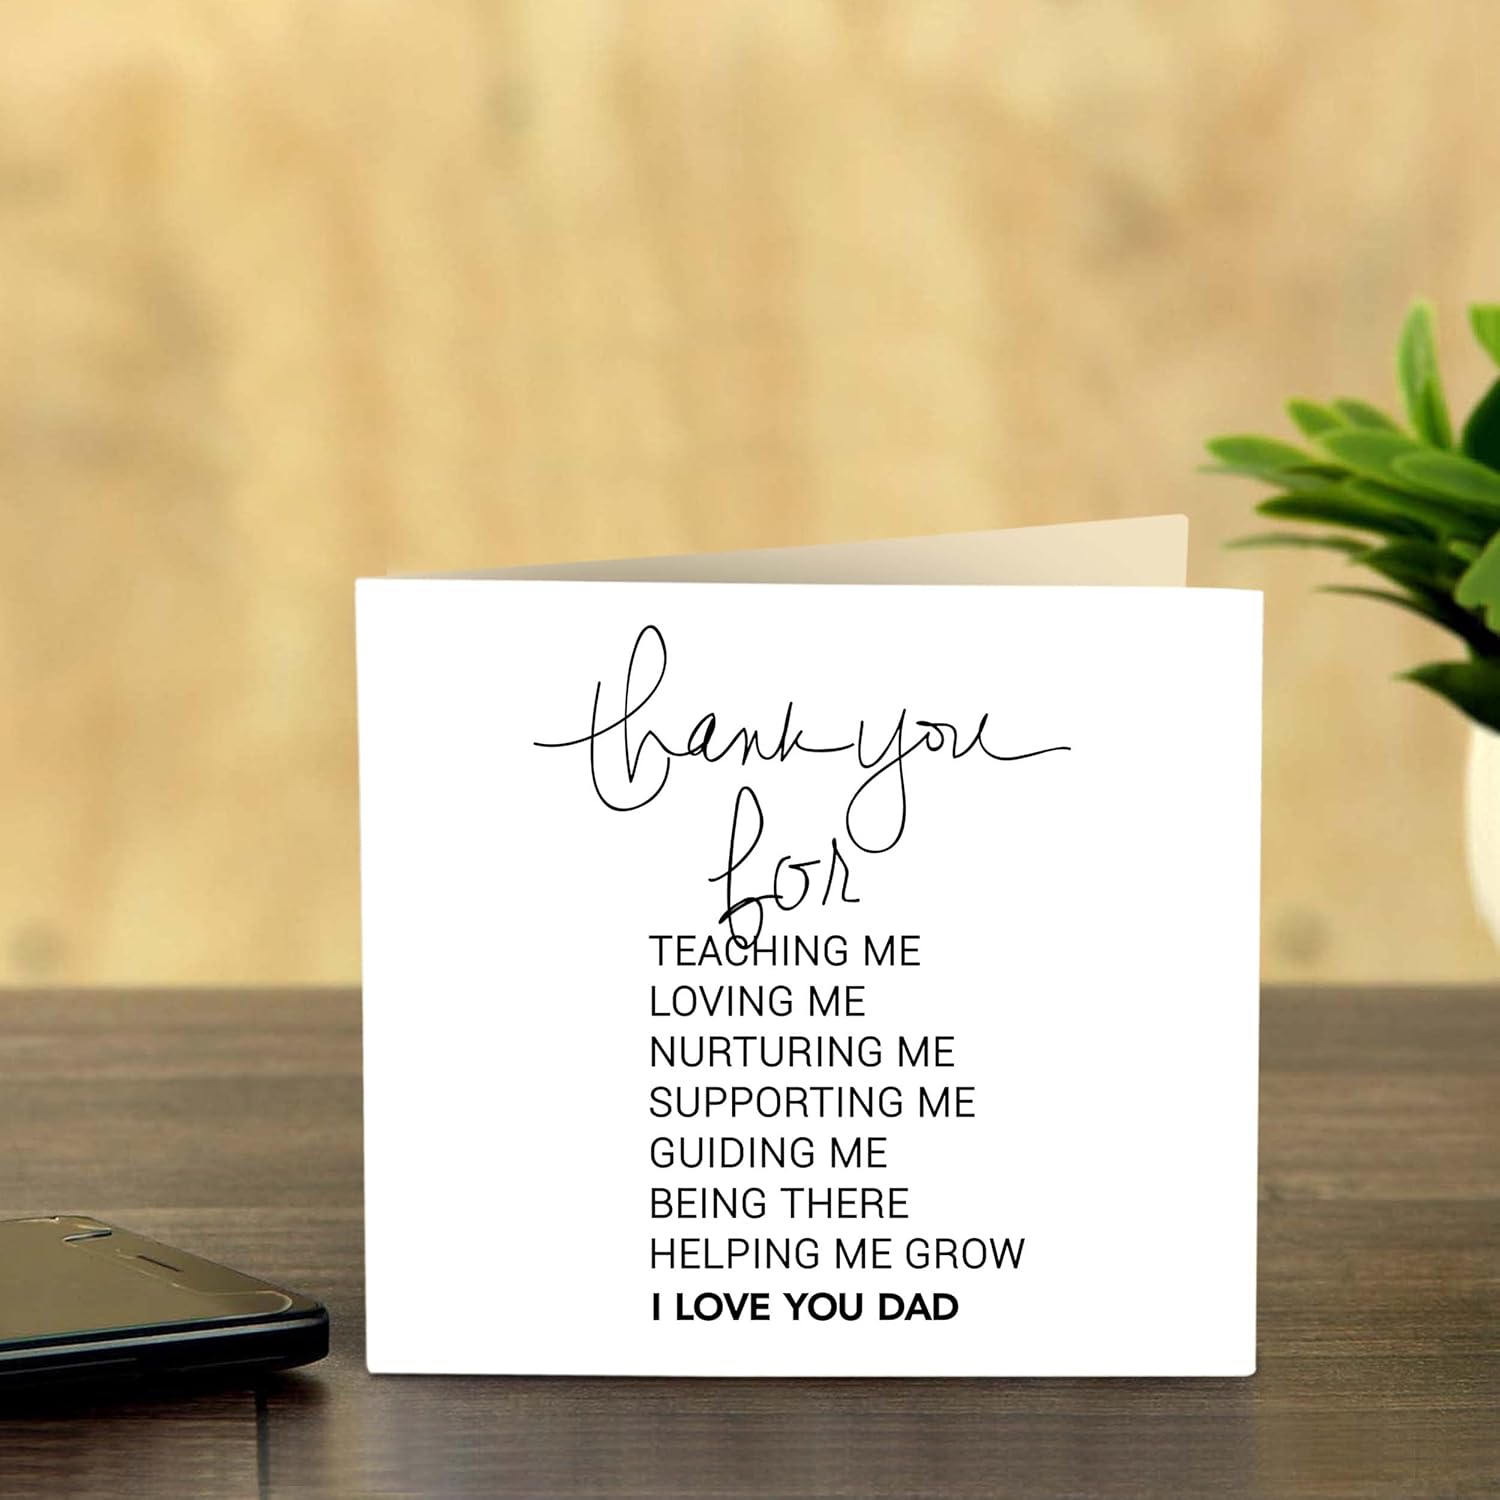 thank you
for
TEACHING ME
LOVING ME
NURTURING ME
SUPPORTING ME
GUIDING ME
BEING THERE
HELPING ME GROW
I LOVE YOU DAD